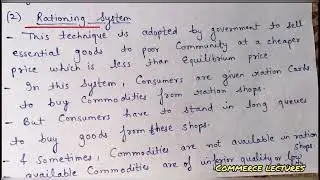 (2) Rationing System
- This technique is adopted by government to sell
essential goods to poor Community at a cheaper
price which is less than Equilibrium price
- In this system, Consumers are given ration Cards
to buy Commodities from ration shops.
- But Consumers have to stand in long queues
to buy goods from these shops.
& Sometimes, Commodities are not available in ration
shops
available Commodities are of inferior quality or low
COMMERCE LECTURES